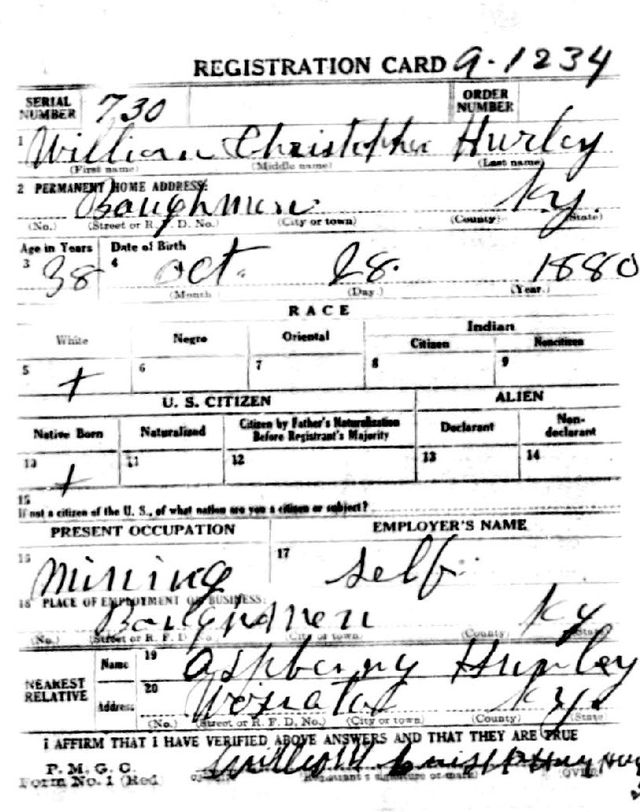 REGISTRATION CARD 9-1234
SERIAL NUMBER 730 ORDER NUMBER
1 William Christopher Hurley
(First name) (Middle name) (Last name)
2 PERMANENT HOME ADDRESS:
Baughman Ky.
(No.) (Street or R. F. D. No.) (City or town) (County) (State)
Age in Years Date of Birth
3 38 4 Oct. 28. 1880
(Month) (Day) (Year)
RACE
White Negro Oriental Indian
Citizen Noncitizen
5 + 6 7 8 9
U. S. CITIZEN ALIEN
Native Born Naturalized Citizen by Father's Naturalization Before Registrant's Majority Declarant Non-declarant
10 + 11 12 13 14
15
If not a citizen of the U. S., of what nation are you a citizen or subject?
PRESENT OCCUPATION EMPLOYER'S NAME
16 mining 17 self
18 PLACE OF EMPLOYMENT OR BUSINESS:
Ky
(No.) (Street or R. F. D. No.) (City or town) (County) (State)
NEAREST RELATIVE Name 19 Hurley
Address 20 Ky.
(No.) (Street or R. F. D. No.) (City or town) (County) (State)
I AFFIRM THAT I HAVE VERIFIED ABOVE ANSWERS AND THAT THEY ARE TRUE
P. M. G. O.
Form No. 1 (Red) (Registrant's signature or mark) (OVER)